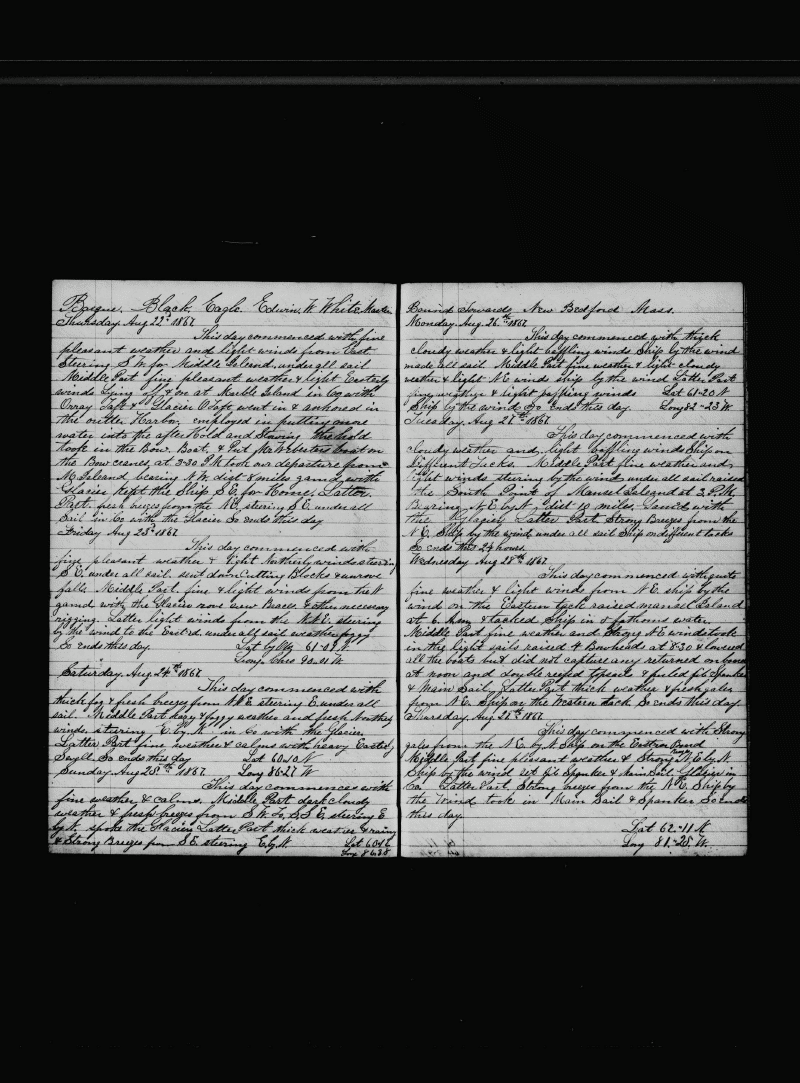 Barque. Black. Eagle. Edwin. W. White. Master
Thursday Aug 22d 1867
This day commenced with fine
pleasant weather and light winds from East
Steering S. W. for Middle Island. under all sail
Middle Part fine pleasant weather & light Easterly
winds lying off & on at Marble Island in Co with
Orray Taft & Glacier O Taft went in & anchored in
the outter Harbor, employed in putting more
water into the after Hold and Stowing the hold
took in the Bow Boat, & Put Mr Websters boat on
the Bow cranes, at 3-30 PM took our departure from
M Island bearing N.W. dist 8 miles gamd, with
Glacier kept the Ship S E. for Home. Latter.
Part. fresh breezes from the N.E, steering S. E. under all
Sail in Co with the Glacier So ends this day
Friday Aug 23d 1867
This day commenced with
fine pleasant weather & light Northerly winds steering
S. E. under all sail. sent down Cutting Blocks & unrove
falls Middle Part. fine & light winds from the N
gamd with the Glacier rove new Braces & other necessary
rigging. Latter light winds from the N.N.E. steering
by the wind to the Eastrd. under all sail weather foggy
So ends this day. Lat by 61-09 N
Long. Chro 90-01 W
Saturday Aug 24th 1867
This day commenced with
thick fog & fresh breezes from N E. steering E. under all
sail. Middle Part hazy & foggy weather and fresh Northerly
winds steering E. by. N. in Co with the Glacier
Latter Part fine weather & calms with heavy Easterly
Swell, So ends this day Lat 60-10 N
Sunday Aug 25th 1867 Long 86-27 W
This day commences with
fine weather & calms. Middle Part dark cloudy
weather & fresh breezes from S.W. To, S. S E, steering E
by N. spoke the Glacier Latter Part thick weather & rainy
& Strong Breezes from S.E. steering E. by. N. Lat 60
Long 86
Bound Towards, New Bedford Mass.
Monday. Aug. 26th 1867
This day commenced with thick
cloudy weather & light baffling winds Ship by the wind
made all sail Middle Part fine weather & light cloudy
weather & light N.E winds ship by the wind Latter Part
foggy weather & light baffling winds Lat 61-20 N
Ship by the wind So Ends this day. Long 82-23 W
Tuesday, Aug 27th 1867
This day commenced with
cloudy weather and light Baffling winds Ship on
Different Tacks. Middle Part fine weather and
light winds steering by the wind under all sail raised
the South Point of Mansel Island at 3, P.M,
Baring N. E. by N dist 10 miles Gam.d with
the Glacier Latter Part Strong Breezes from the
N E, Ship by the wind under all sail Ship on different tacks
So ends these 24 hours
Wednesday Aug 28th 1867
This day commenced with quite
fine weather & light winds from N E. ship by the
wind on the Eastern tack raised mansel Island
at 6. A.m & tacked Ship in 9 fathoms water
Middle Part fine weather and Strong N E winds took
in the light sails raised 4 Bowheads at 8-30 & lowered
all the boats but did not capture any returned on board
at noon and double reefed topsails & furled jib Spanker
& Main Sail, Latter Part thick weather & fresh gales
from N E. Ship on the Western tack So ends this day
Thursday Aug 29th 1867.
This day commenced with Strong
gales from the N E. by. N. Ship on the Eastern
Middle Part fine pleasant weather & Strong N E by N
Ship by the wind set jib Spanker & Main Sail Glacier in
Co, Latter Part, Strong breezes from the N E, Ship by
the Wind took in Main Sail & Spanker So Ends
this day.
Lat 62-11 N
Long 81-25. W.